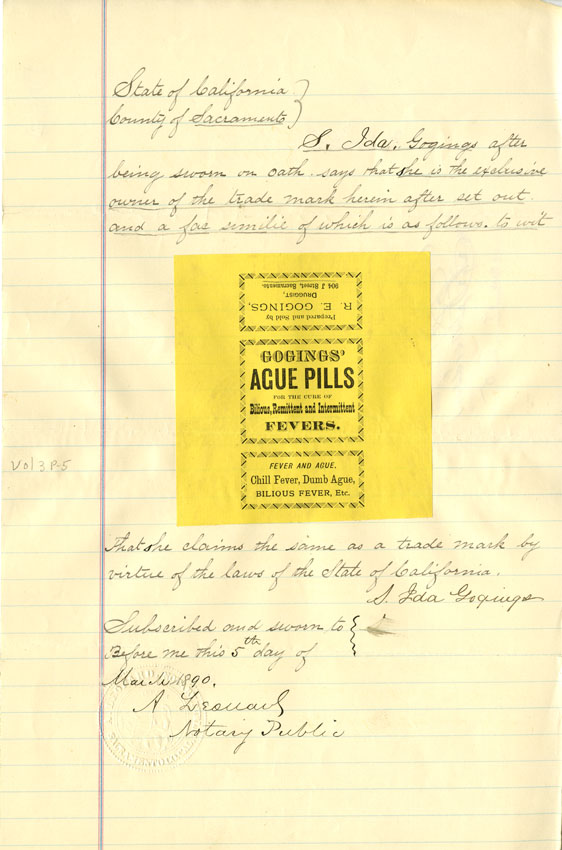 State of California
County of Sacramento
S. Ida. Gogings after
being sworn on oath says that she is the exclusive
owner of the trade mark herein after set out
and a fac similie of which is as follows. to wit
Prepared and Sold by
R. E. GOGINGS,
DRUGGIST,
904 J Street, Sacramento.
GOGINGS'
AGUE PILLS
FOR THE CURE OF
Bilious, Remittent and Intermittent
FEVERS.
FEVER AND AGUE,
Chill Fever, Dumb Ague,
BILIOUS FEVER, Etc.
Vol 3 P-5
That she claims the same as a trade mark by
virtue of the laws of the State of California.
S. Ida Gogings
Subscribed and sworn to
Before me this 5th day of
March 1890.
A Leonard
Notary Public